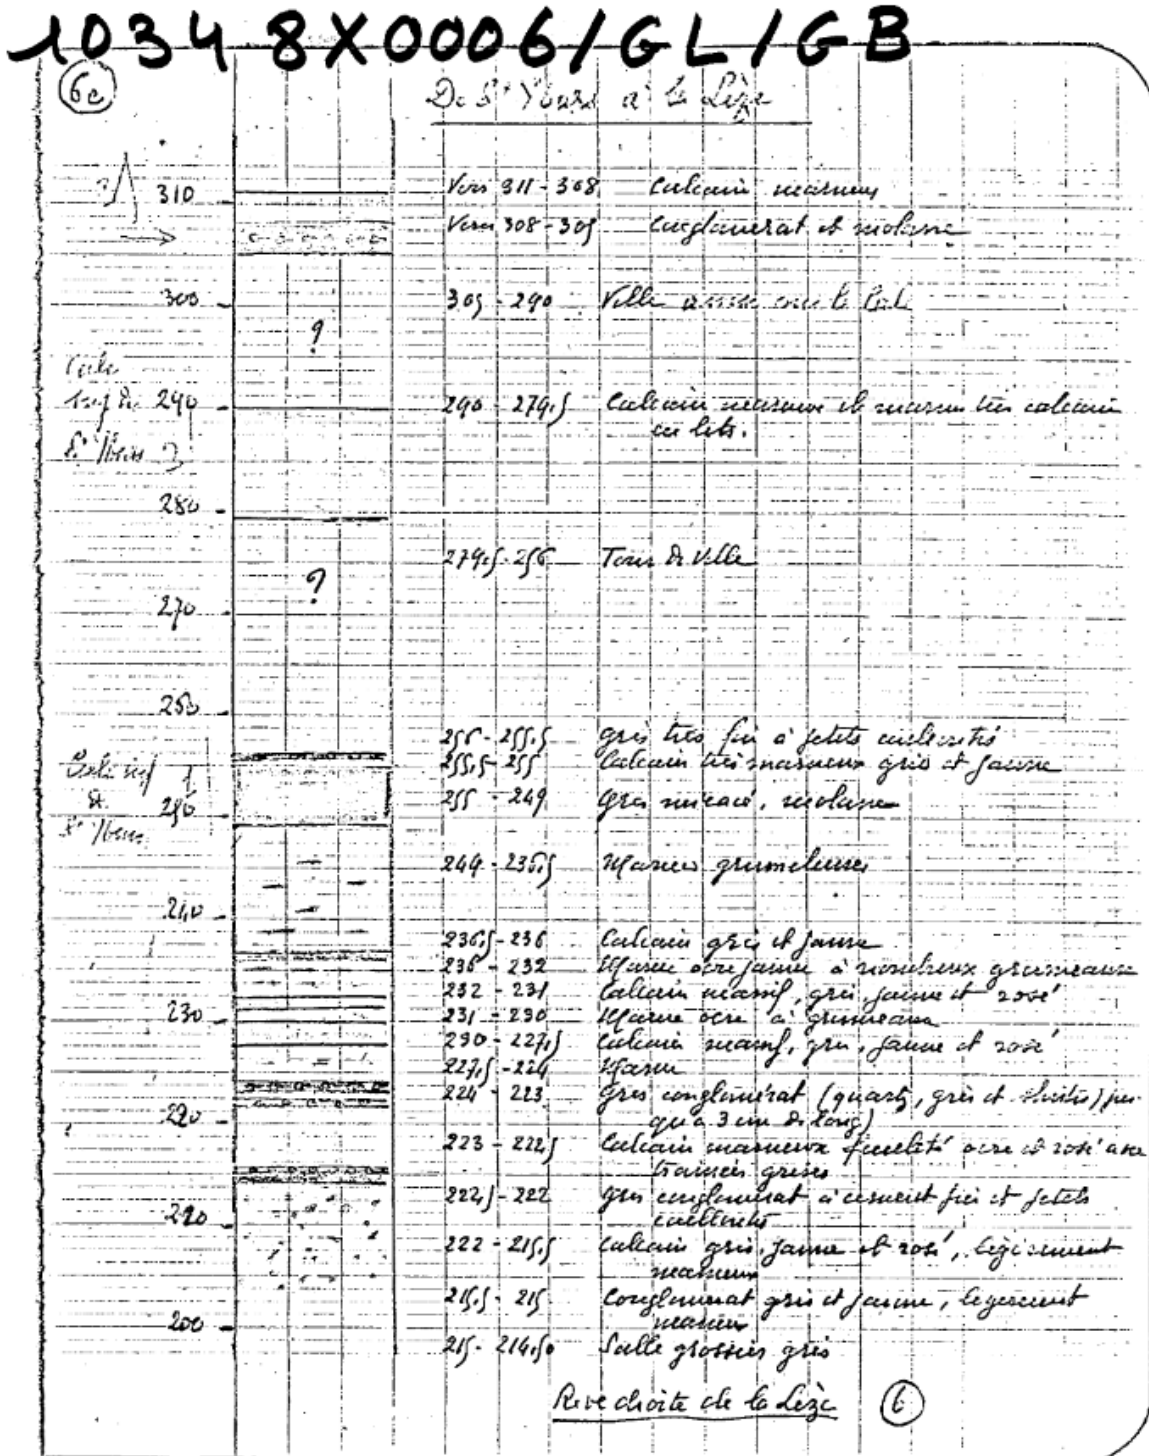 10348X0006/GL/GB
6e
De St Ybars à la Lèze
310
Vers 311-308 Calcaire marneux
Vers 308-305 Conglomérat et molasse
300
305-290 Ville
?
290
290-279,5 Calcaire marneux et marnes très calcaires
en lits.
St Ybars
280
279,5-256 Tour de Ville
?
270
260
256-255,5 Grès très fin à petits
255,5-255 Calcaire très marneux gris et jaune
250
255-249 Grès micacé, molasse
St Ybars
249-236,5 Marnes grumeleuses
240
236,5-236 Calcaire gris et jaune
236-232 Marne ocre jaune à nombreux grumeaux
232-231 Calcaire massif, gris, jaune et rosé
230
231-230 Marne ocre à grumeaux
230-227,5 Calcaire massif, gris, jaune et rosé
227,5-224 Marne
224-223 Grès conglomérat (quartz, grès et jus-
220
qu'à 3 cm de long)
223-222,5 Calcaire marneux ocre et rosé avec
trainées grises
222,5-222 Grès conglomérat à ciment fin et petits
210
222-215,5 Calcaire gris, jaune et rosé, légèrement
marneux
215,5-215 Conglomérat gris et jaune, légèrement
200
marneux
215-214,50 Sable grossier gris
Rive droite de la Lèze 6